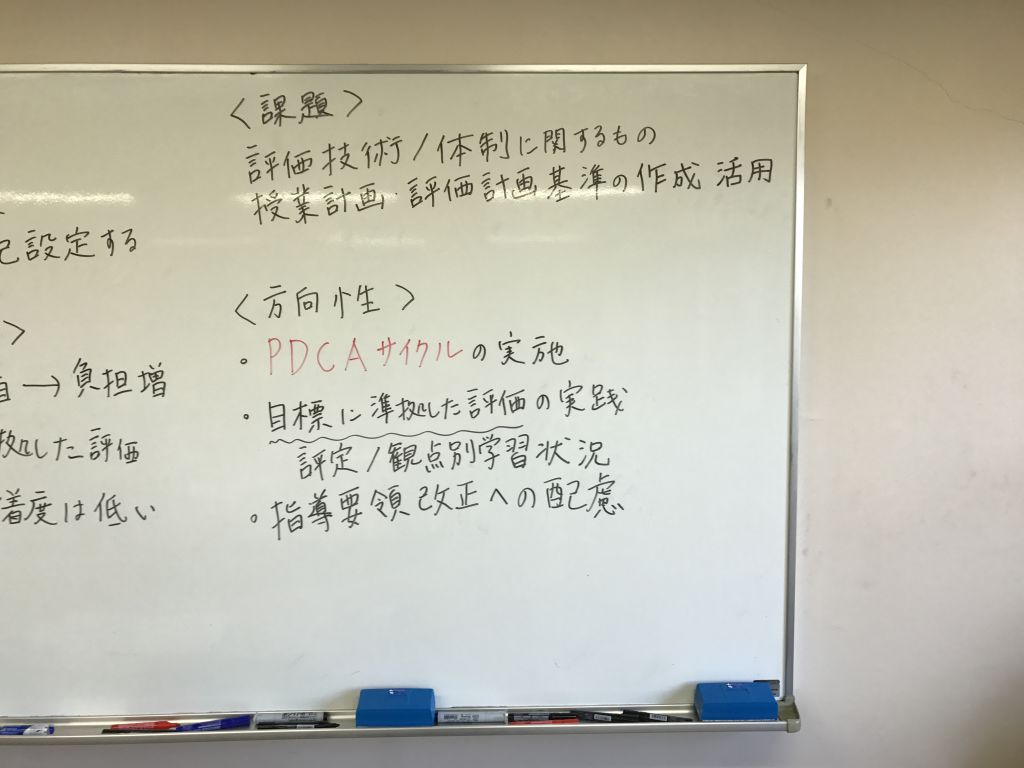 設定する
>
→負担増
した評価
着度は低い
<課題>
評価技術/体制に関するもの
授業計画・評価計画基準の作成 活用
<方向性>
・PDCAサイクルの実施
・目標に準拠した評価の実践
評定/観点別学習状況
・指導要領改正への配慮